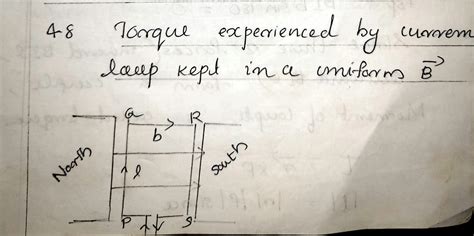 48 Torque experienced by curren
loop kept in a uniform B
Q R
b
North
l
South
P S